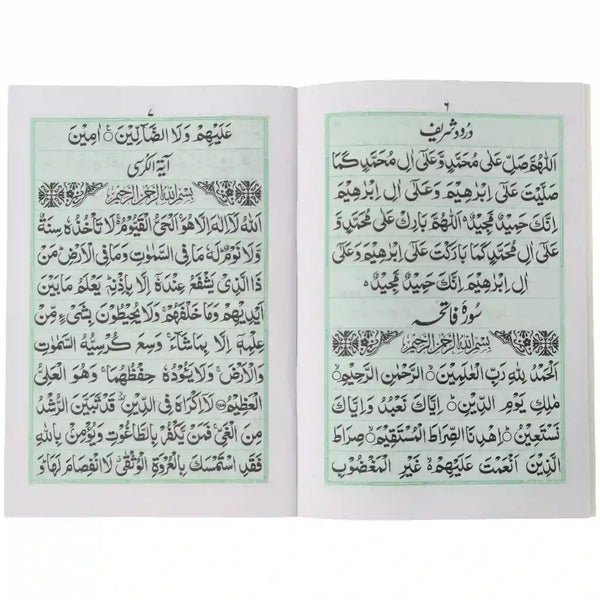 ٦
درود شریف
اَللّٰهُمَّ صَلِّ عَلٰى مُحَمَّدٍ وَّعَلٰٓى اٰلِ مُحَمَّدٍ كَمَا
صَلَّيْتَ عَلٰٓى اِبْرٰهِيْمَ وَعَلٰٓى اٰلِ اِبْرٰهِيْمَ
اِنَّكَ حَمِيْدٌ مَّجِيْدٌ ۞ اَللّٰهُمَّ بَارِكْ عَلٰى مُحَمَّدٍ وَّ
عَلٰٓى اٰلِ مُحَمَّدٍ كَمَا بَارَكْتَ عَلٰٓى اِبْرٰهِيْمَ وَعَلٰٓى
اٰلِ اِبْرٰهِيْمَ اِنَّكَ حَمِيْدٌ مَّجِيْدٌ ۞
سورۃ فاتحہ
بِسْمِ اللّٰهِ الرَّحْمٰنِ الرَّحِيْمِ
اَلْحَمْدُ لِلّٰهِ رَبِّ الْعٰلَمِيْنَ ۞ الرَّحْمٰنِ الرَّحِيْمِ ۞
مٰلِكِ يَوْمِ الدِّيْنِ ۞ اِيَّاكَ نَعْبُدُ وَاِيَّاكَ
نَسْتَعِيْنُ ۞ اِهْدِنَا الصِّرَاطَ الْمُسْتَقِيْمَ ۞ صِرَاطَ
الَّذِيْنَ اَنْعَمْتَ عَلَيْهِمْ ۞ غَيْرِ الْمَغْضُوْبِ
٧
عَلَيْهِمْ وَلَا الضَّآلِّيْنَ ۞ اٰمِيْنَ
آیۃ الکرسی
بِسْمِ اللّٰهِ الرَّحْمٰنِ الرَّحِيْمِ
اَللّٰهُ لَآ اِلٰهَ اِلَّا هُوَ اَلْحَيُّ الْقَيُّوْمُ ۚ لَا تَاْخُذُهٗ سِنَةٌ
وَّلَا نَوْمٌ ؕ لَهٗ مَا فِى السَّمٰوٰتِ وَمَا فِى الْاَرْضِ ؕ مَنْ
ذَا الَّذِيْ يَشْفَعُ عِنْدَهٗٓ اِلَّا بِاِذْنِهٖ ؕ يَعْلَمُ مَا بَيْنَ
اَيْدِيْهِمْ وَمَا خَلْفَهُمْ ۚ وَلَا يُحِيْطُوْنَ بِشَيْءٍ مِّنْ
عِلْمِهٖٓ اِلَّا بِمَا شَآءَ ۚ وَسِعَ كُرْسِيُّهُ السَّمٰوٰتِ
وَالْاَرْضَ ۚ وَلَا يَـُٔوْدُهٗ حِفْظُهُمَا ۚ وَهُوَ الْعَلِيُّ
الْعَظِيْمُ ۞ لَآ اِكْرَاهَ فِى الدِّيْنِ ۙ قَدْ تَّبَيَّنَ الرُّشْدُ
مِنَ الْغَيِّ ۚ فَمَنْ يَّكْفُرْ بِالطَّاغُوْتِ وَيُؤْمِنْۢ بِاللّٰهِ
فَقَدِ اسْتَمْسَكَ بِالْعُرْوَةِ الْوُثْقٰى ۗ لَا انْفِصَامَ لَهَا ؕ وَ